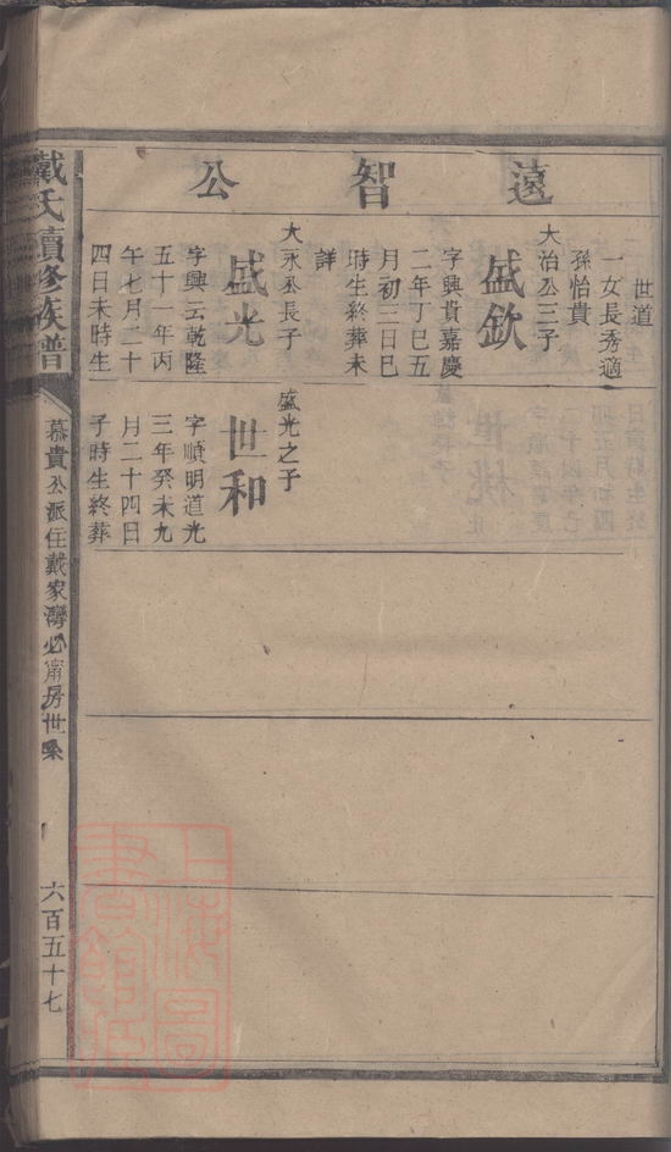 遠智公
世道
一女長秀適
孫怡貴
大治公三子
盛欽
字興貴嘉慶
二年丁巳五
月初三日巳
時生終葬未
詳
大永公長子
盛光
字興云乾隆
五十一年丙
午七月二十
四日未時生
盛光之子
世和
字順明道光
三年癸未九
月二十四日
子時生終葬
戴氏續修族譜
慕貴公派住戴家灣必甯房世系
六百五十七
上海圖
書館藏